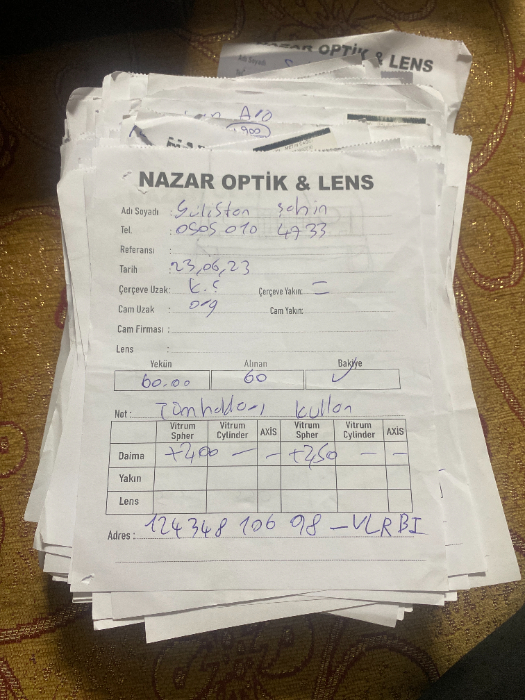 OPTİK & LENS
Adı Soyadı
A10
1900
NAZAR OPTİK & LENS
Adı Soyadı : Gülistan Şahin
Tel. : 0505 010 4933
Referansı :
Tarih : 23,06,23
Çerçeve Uzak: K.Ç Çerçeve Yakın: =
Cam Uzak : org Cam Yakın:
Cam Firması :
Lens :
Yekün Alınan Bakiye
60.00 60 ✓
Not : kullan
Vitrum Spher Vitrum Cylinder AXİS Vitrum Spher Vitrum Cylinder AXİS
Daima +2,00 — — +2,50 — —
Yakın
Lens
Adres : 124348 106 98 – VLRBI